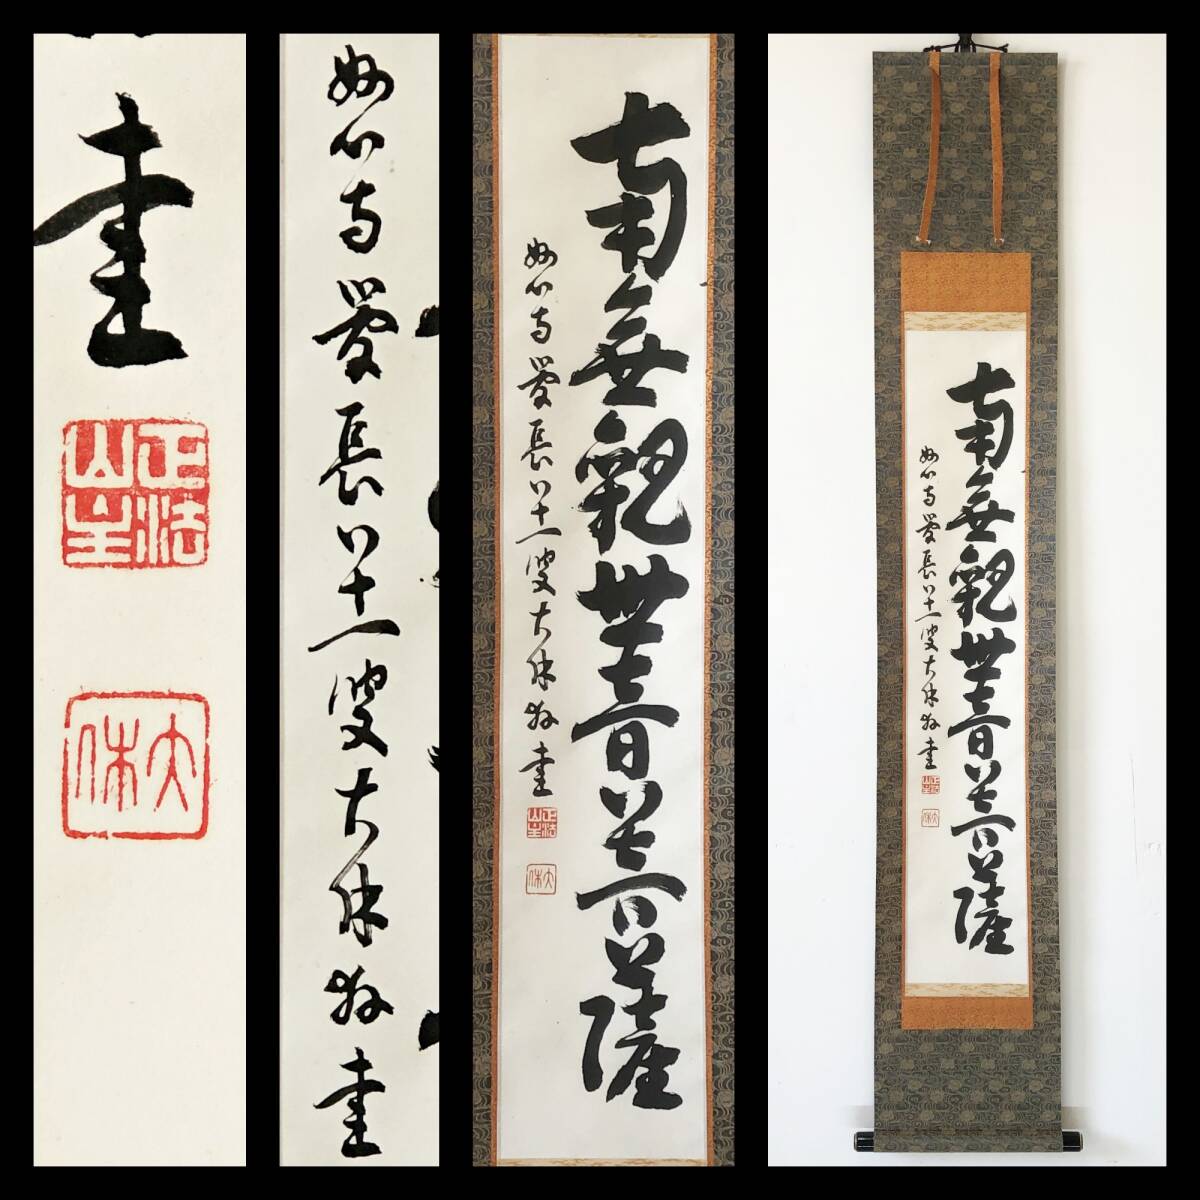 書
正法山主
大休
妙心寺管長八十一叟大休敬書
南無観世音菩薩
妙心寺管長八十一叟大休敬書
正法山主
大休
南無観世音菩薩
妙心寺管長八十一叟大休敬書
正法山主
大休